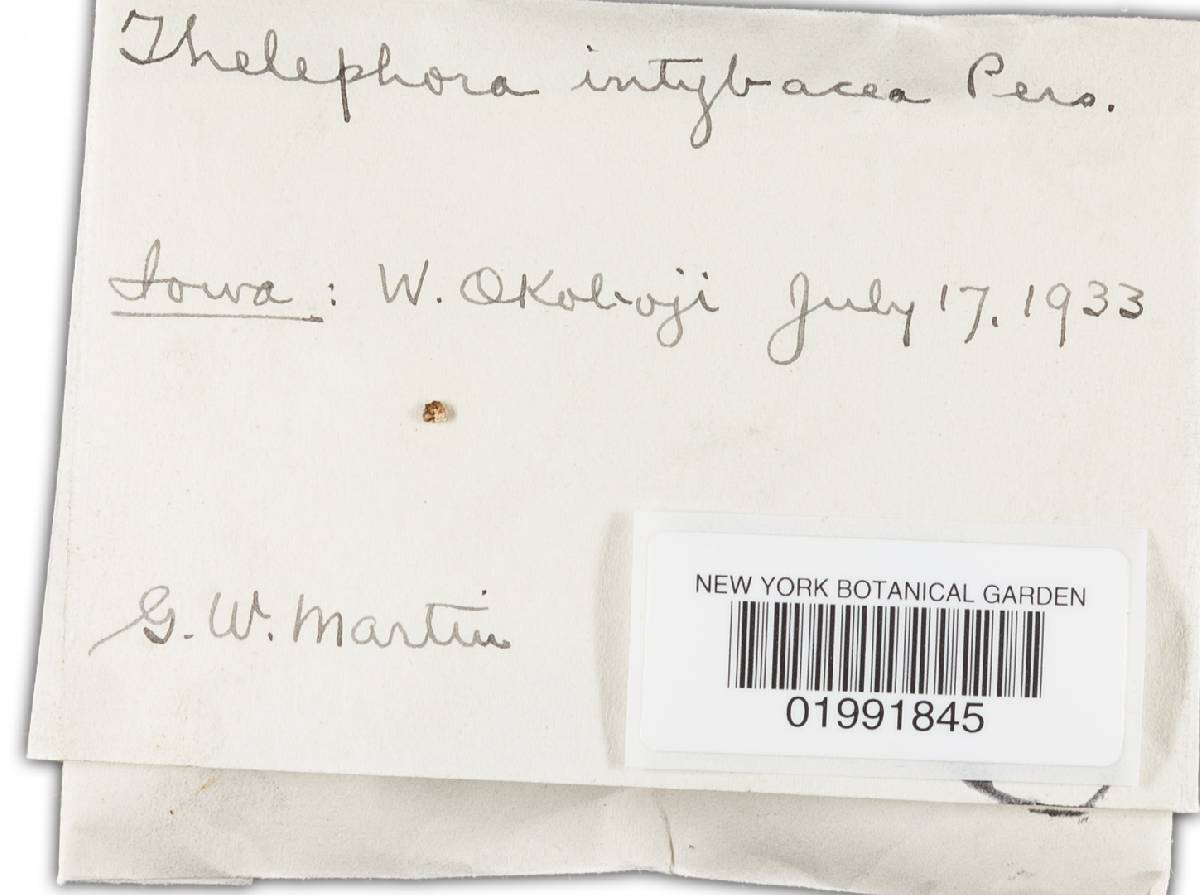 Thelephora intybacea Pers.
Iowa: W. Okoboji July 17, 1933
G. W. Martin
NEW YORK BOTANICAL GARDEN
01991845